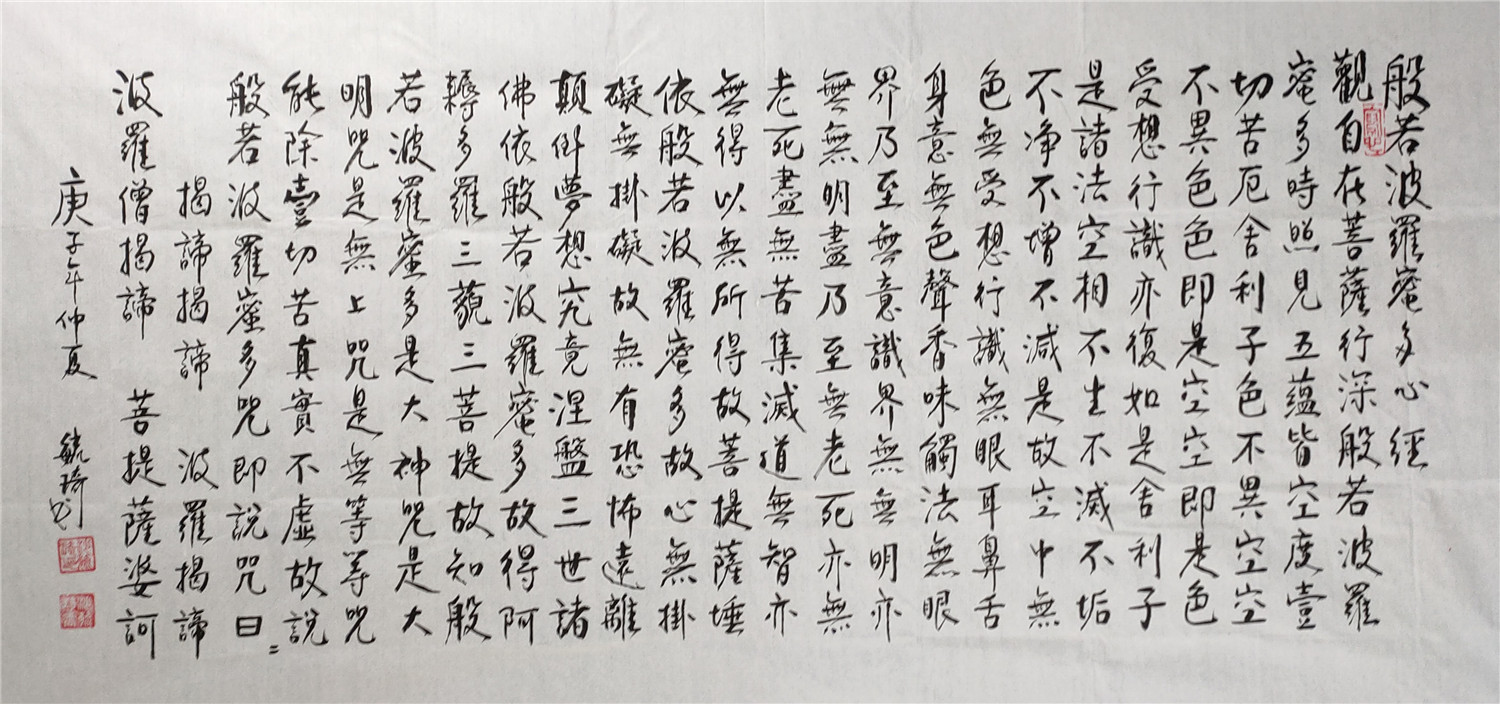 般若波羅蜜多心經
觀自在菩薩行深般若波羅
蜜多時照見五蘊皆空度壹
切苦厄舍利子色不異空空
不異色色即是空空即是色
受想行識亦復如是舍利子
是諸法空相不生不滅不垢
不净不增不減是故空中無
色無受想行識無眼耳鼻舌
身意無色聲香味觸法無眼
界乃至無意識界無無明亦
無無明盡乃至無老死亦無
老死盡無苦集滅道無智亦
無得以無所得故菩提薩埵
依般若波羅蜜多故心無掛
礙無掛礙故無有恐怖遠離
顛倒夢想究竟涅盤三世諸
佛依般若波羅蜜多故得阿
耨多羅三藐三菩提故知般
若波羅蜜多是大神咒是大
明咒是無上咒是無等等咒
能除壹切苦真實不虛故說
般若波羅蜜多咒即說咒曰
揭諦揭諦 波羅揭諦
波羅僧揭諦 菩提薩婆訶
庚子年仲夏 毓琦书